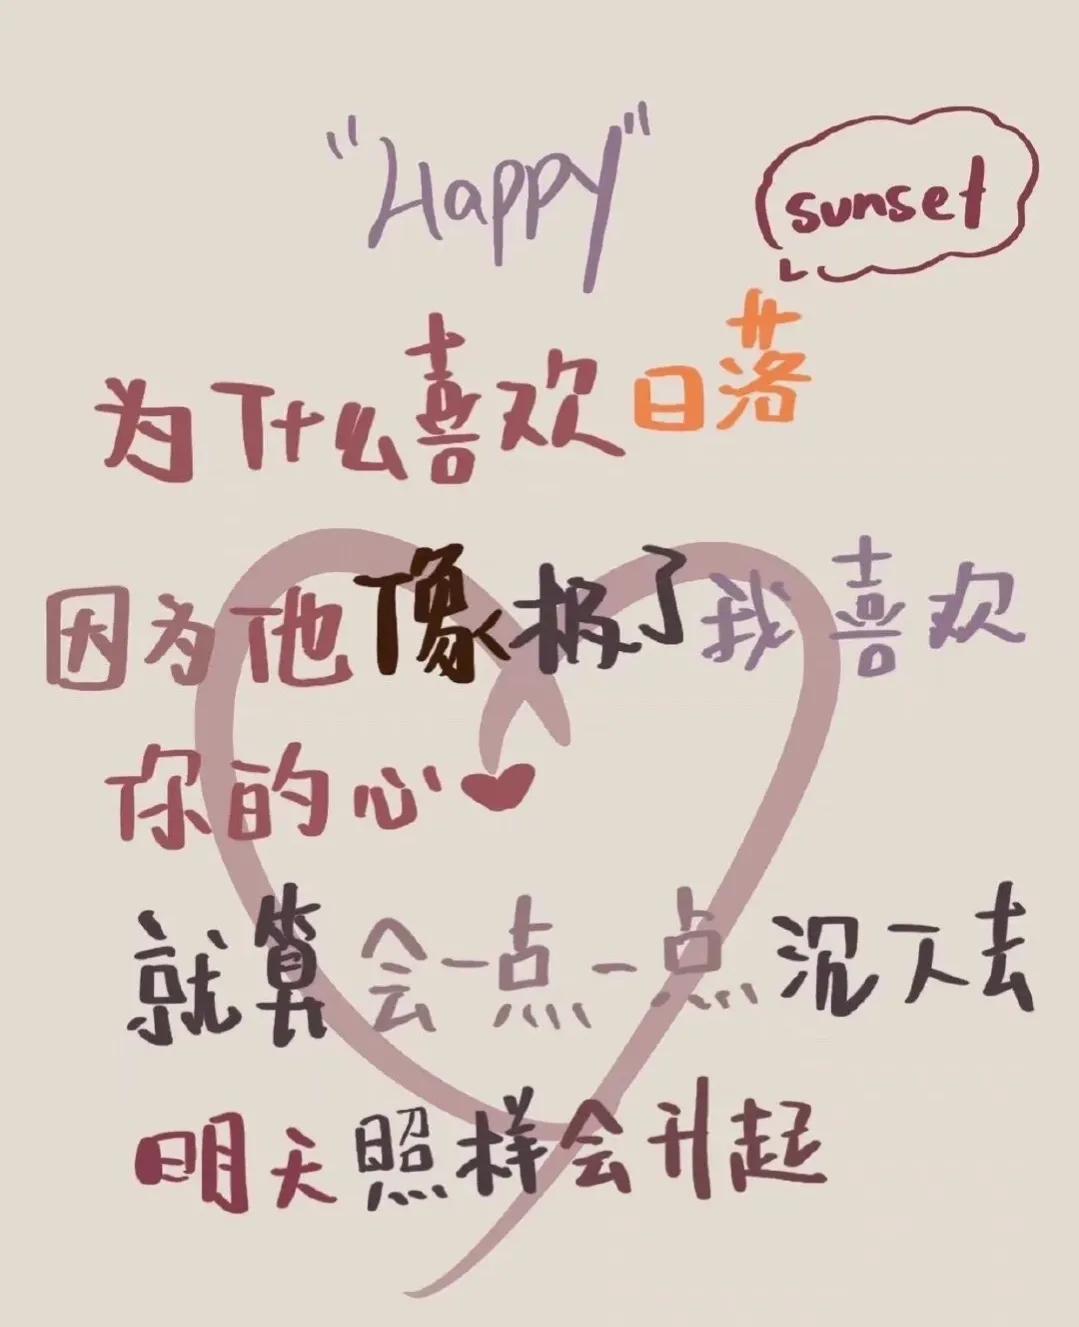 "Happy"
sunset
为什么喜欢日落
因为他像极了我喜欢
你的心
就算会一点一点沉下去
明天照样会升起